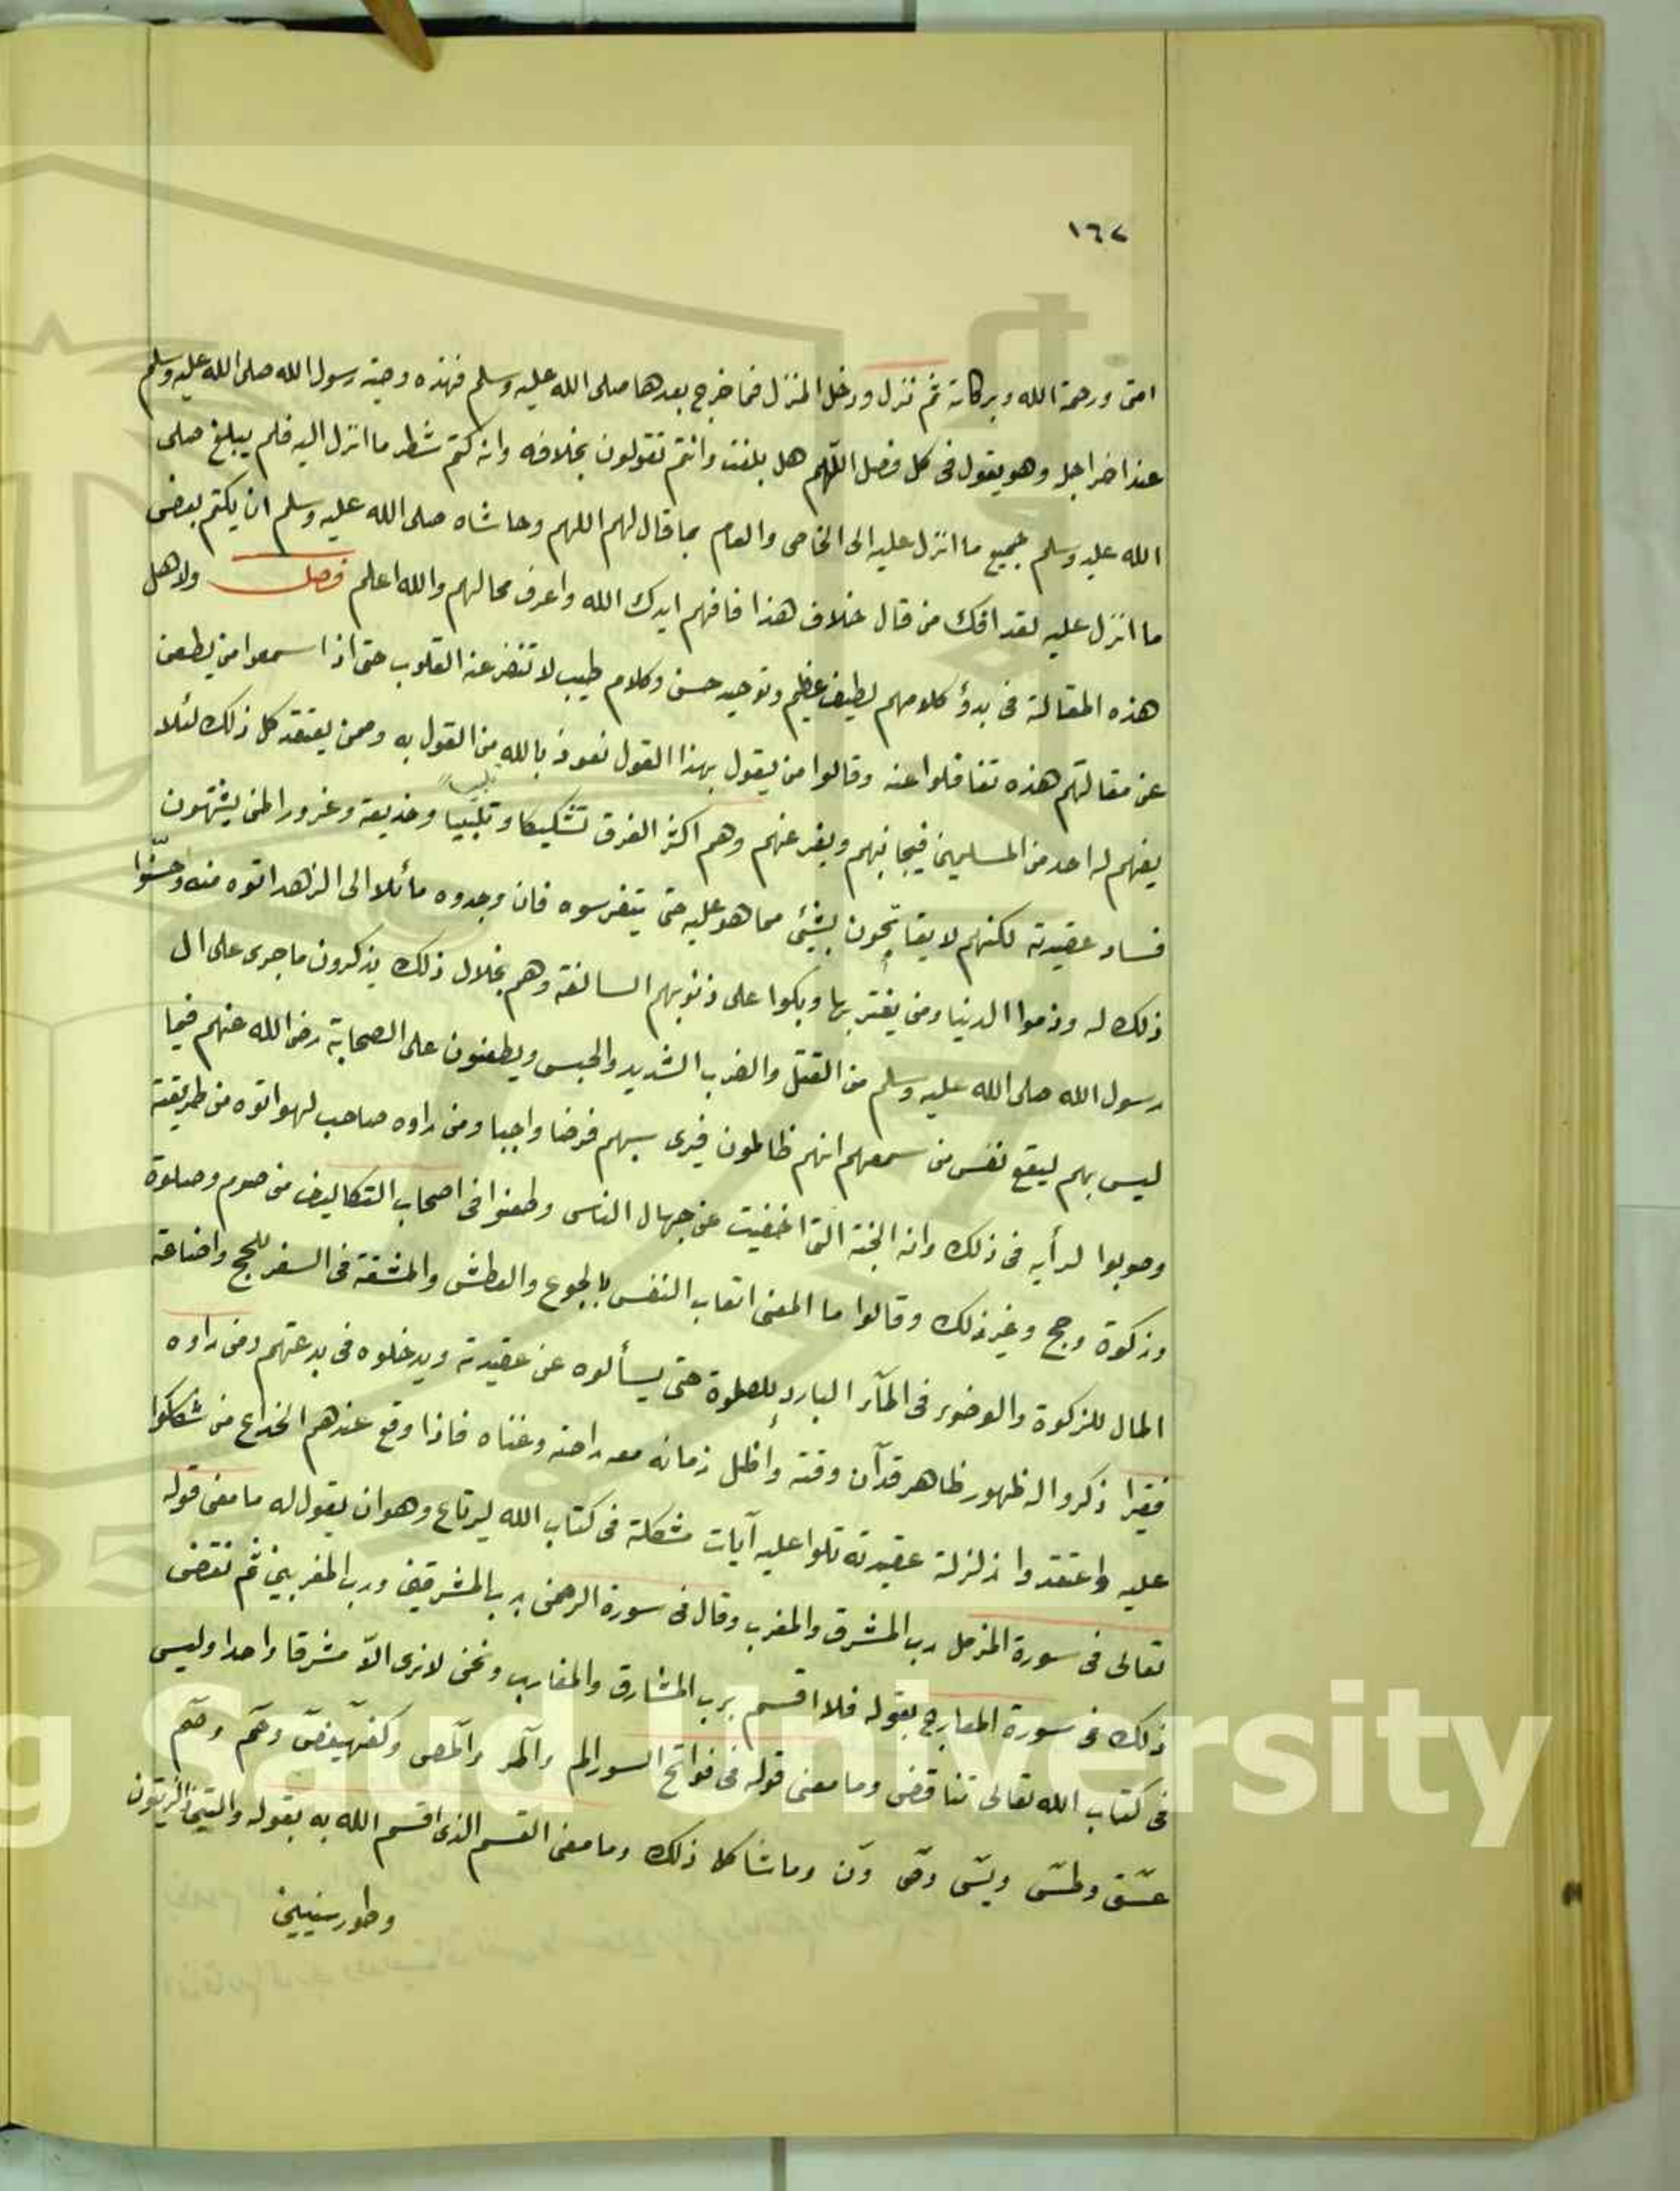 ١٦٧
امتى ورحمة الله وبركاته ثم نزل ودخل المنزل فما خرج بعدها صلى الله عليه وسلم فهذه وصية رسول الله صلى الله عليه وسلم
عند اخر اجل وهو يقول فى كل فصل اللهم هل بلغت وانتم تقولون بخلافه وانه كتم شطر ما انزل اليه فلم يبلغ صلى
الله عليه وسلم جميع ما انزل عليه الى الخاص والعام بما قال لهم اللهم وحاشاه صلى الله عليه وسلم ان يكتم بعض
ما انزل عليه لقد افك من قال خلاف هذا فافهم ايدك الله واعرف محالهم والله اعلم فصل ولاهل
هذه المقالة فى بدؤ كلامهم لطيف عظيم وتوحيد حسن وكلام طيب لا تنفر عنه القلوب حتى اذا سمعوا من يطعن
عن مقالتهم هذه تغافلوا عنه وقالوا من يقول بهذا القول نعوذ بالله من القول به وممن يعتقد كل ذلك لئلا
يفهم له احد من المسلمين فيجانبهم ويفر عنهم وهم اكثر الفرق تشكيكا وتلبيسا وخديعة وغرور المن يشتهون
فساد عقيدته لكنهم لا يفاتحون بشيئ مما هو عليه حتى يتفرسوه فان وجدوه مائلا الى الزهد اتوه منه وحسّنوا
ذلك له وذموا الدنيا ومن يغتر بها وبكوا على ذنوبهم السالفة وهم بخلال ذلك يذكرون ما جرى على ال
رسول الله صلى الله عليه وسلم من القتل والضرب الشديد والحبس ويطعنون على الصحابة رضى الله عنهم فيما
ليس بهم ليقع نفس من سمعهم انهم ظالمون فيرى سبهم فرضا واجبا ومن راوه صاحب لهو اتوه من طريقته
وصوبوا لرأيه فى ذلك وانه الجنة التى اخفيت عن جهال الناس وطعنوا فى اصحاب التكاليف من صوم وصلوة
وزكوة وحج وغير ذلك وقالوا ما المعنى اتعاب النفس بالجوع والعطش والمشقة فى السفر للحج واضاعة
المال للزكوة والوضوء فى المآء البارد للصلوة حتى يسألوه عن عقيدته ويدخلوه فى بدعتهم ومن راوه
فقيرا ذكروا له ظهور ظاهر قد آن وقته وأظل زمانه معه راحته وغناه فاذا وقع عندهم الخداع من شككوا
عليه واعتقدوا زلزلة عقيدته تلوا عليه آيات مشكلة فى كتاب الله ليرتاع وهو ان يقول له ما معنى قوله
تعالى فى سورة المزمل رب المشرق والمغرب وقال فى سورة الرحمن رب المشرقين ورب المغربين ثم نقض
ذلك فى سورة المعارج بقوله فلا اقسم برب المشارق والمغارب ونحن لا نرى الاّ مشرقا واحدا وليس
فى كتاب الله تعالى تناقض وما معنى قوله فى فواتح السور الم والمر والمص وكهيعص وحم وحم
عسق وطس ويس وص ون وما شاكل ذلك وما معنى القسم الذى اقسم الله به بقوله والتين والزيتون
وطور سينين
King Saud University